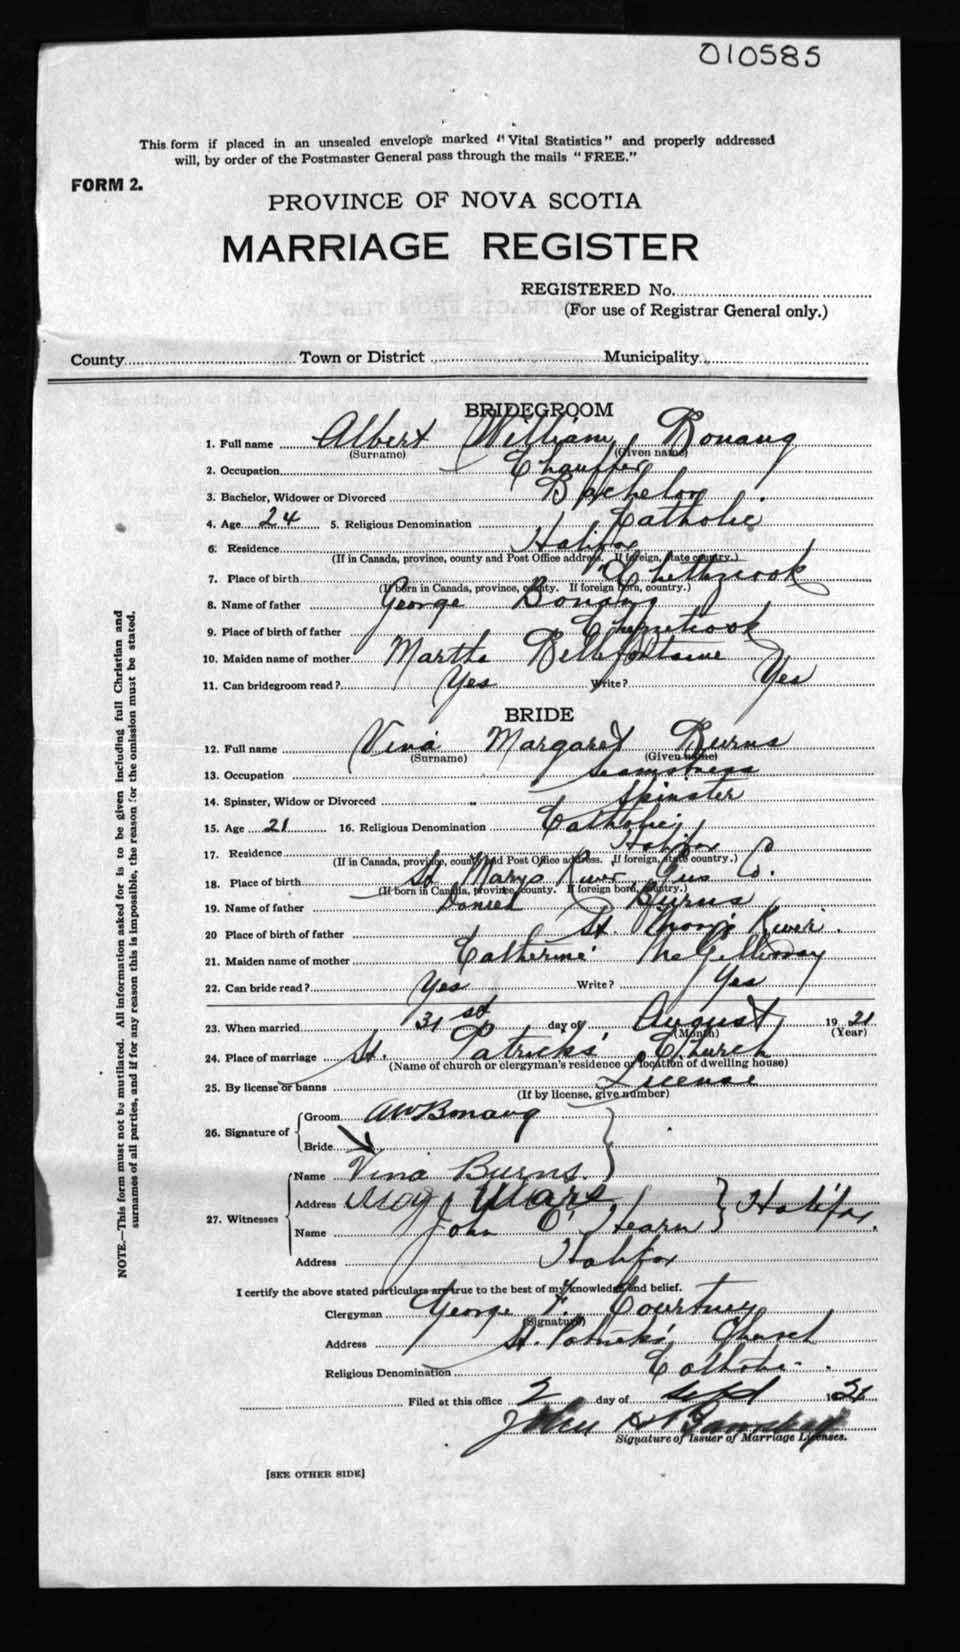 010585
This form if placed in an unsealed envelope marked "Vital Statistics" and properly addressed
will, by order of the Postmaster General pass through the mails "FREE."
FORM 2.
PROVINCE OF NOVA SCOTIA
MARRIAGE REGISTER
REGISTERED No.
(For use of Registrar General only.)
County Town or District Municipality
BRIDEGROOM
1. Full name Albert William Bonang
(Surname) (Given name)
2. Occupation Chauffer
3. Bachelor, Widower or Divorced Bachelor
4. Age 24 5. Religious Denomination Catholic
6. Residence Halifax
(If in Canada, province, county and Post Office address. If foreign, state country.)
7. Place of birth Chethzrook
(If born in Canada, province, county. If foreign born, country.)
8. Name of father George Bonang
9. Place of birth of father
10. Maiden name of mother Martha Bellefontaine
11. Can bridegroom read? Yes Write? Yes
BRIDE
12. Full name Vina Margaret Burns
(Surname) (Given name)
13. Occupation Seamstress
14. Spinster, Widow or Divorced Spinster
15. Age 21 16. Religious Denomination Catholic
17. Residence Halifax
(If in Canada, province, county and Post Office address. If foreign, state country.)
18. Place of birth St. Marys River Gus Co.
(If born in Canada, province, county. If foreign born, country.)
19. Name of father Daniel Burns
20 Place of birth of father St. Mary's River.
21. Maiden name of mother Catherine McGillivray
22. Can bride read? Yes Write? Yes
23. When married 31st day of August 19 21
(Month) (Year)
24. Place of marriage St. Patricks' Church
(Name of church or clergyman's residence or location of dwelling house)
25. By license or banns License
(If by license, give number)
26. Signature of Groom AW Bonang
Bride
Name Vina Burns.
27. Witnesses Address May Ware Halifax.
Name John O' Hearn
Address Halifax
I certify the above stated particulars are true to the best of my knowledge and belief.
Clergyman George F. Courtney
(Signature)
Address St. Patricks' Church
Religious Denomination Catholic.
Filed at this office 2 day of Sept 1921
John
Signature of Issuer of Marriage Licenses.
[SEE OTHER SIDE]
NOTE.—This form must not be mutilated. All information asked for is to be given including full Christian and
surnames of all parties, and if for any reason this is impossible, the reason for the omission must be stated.